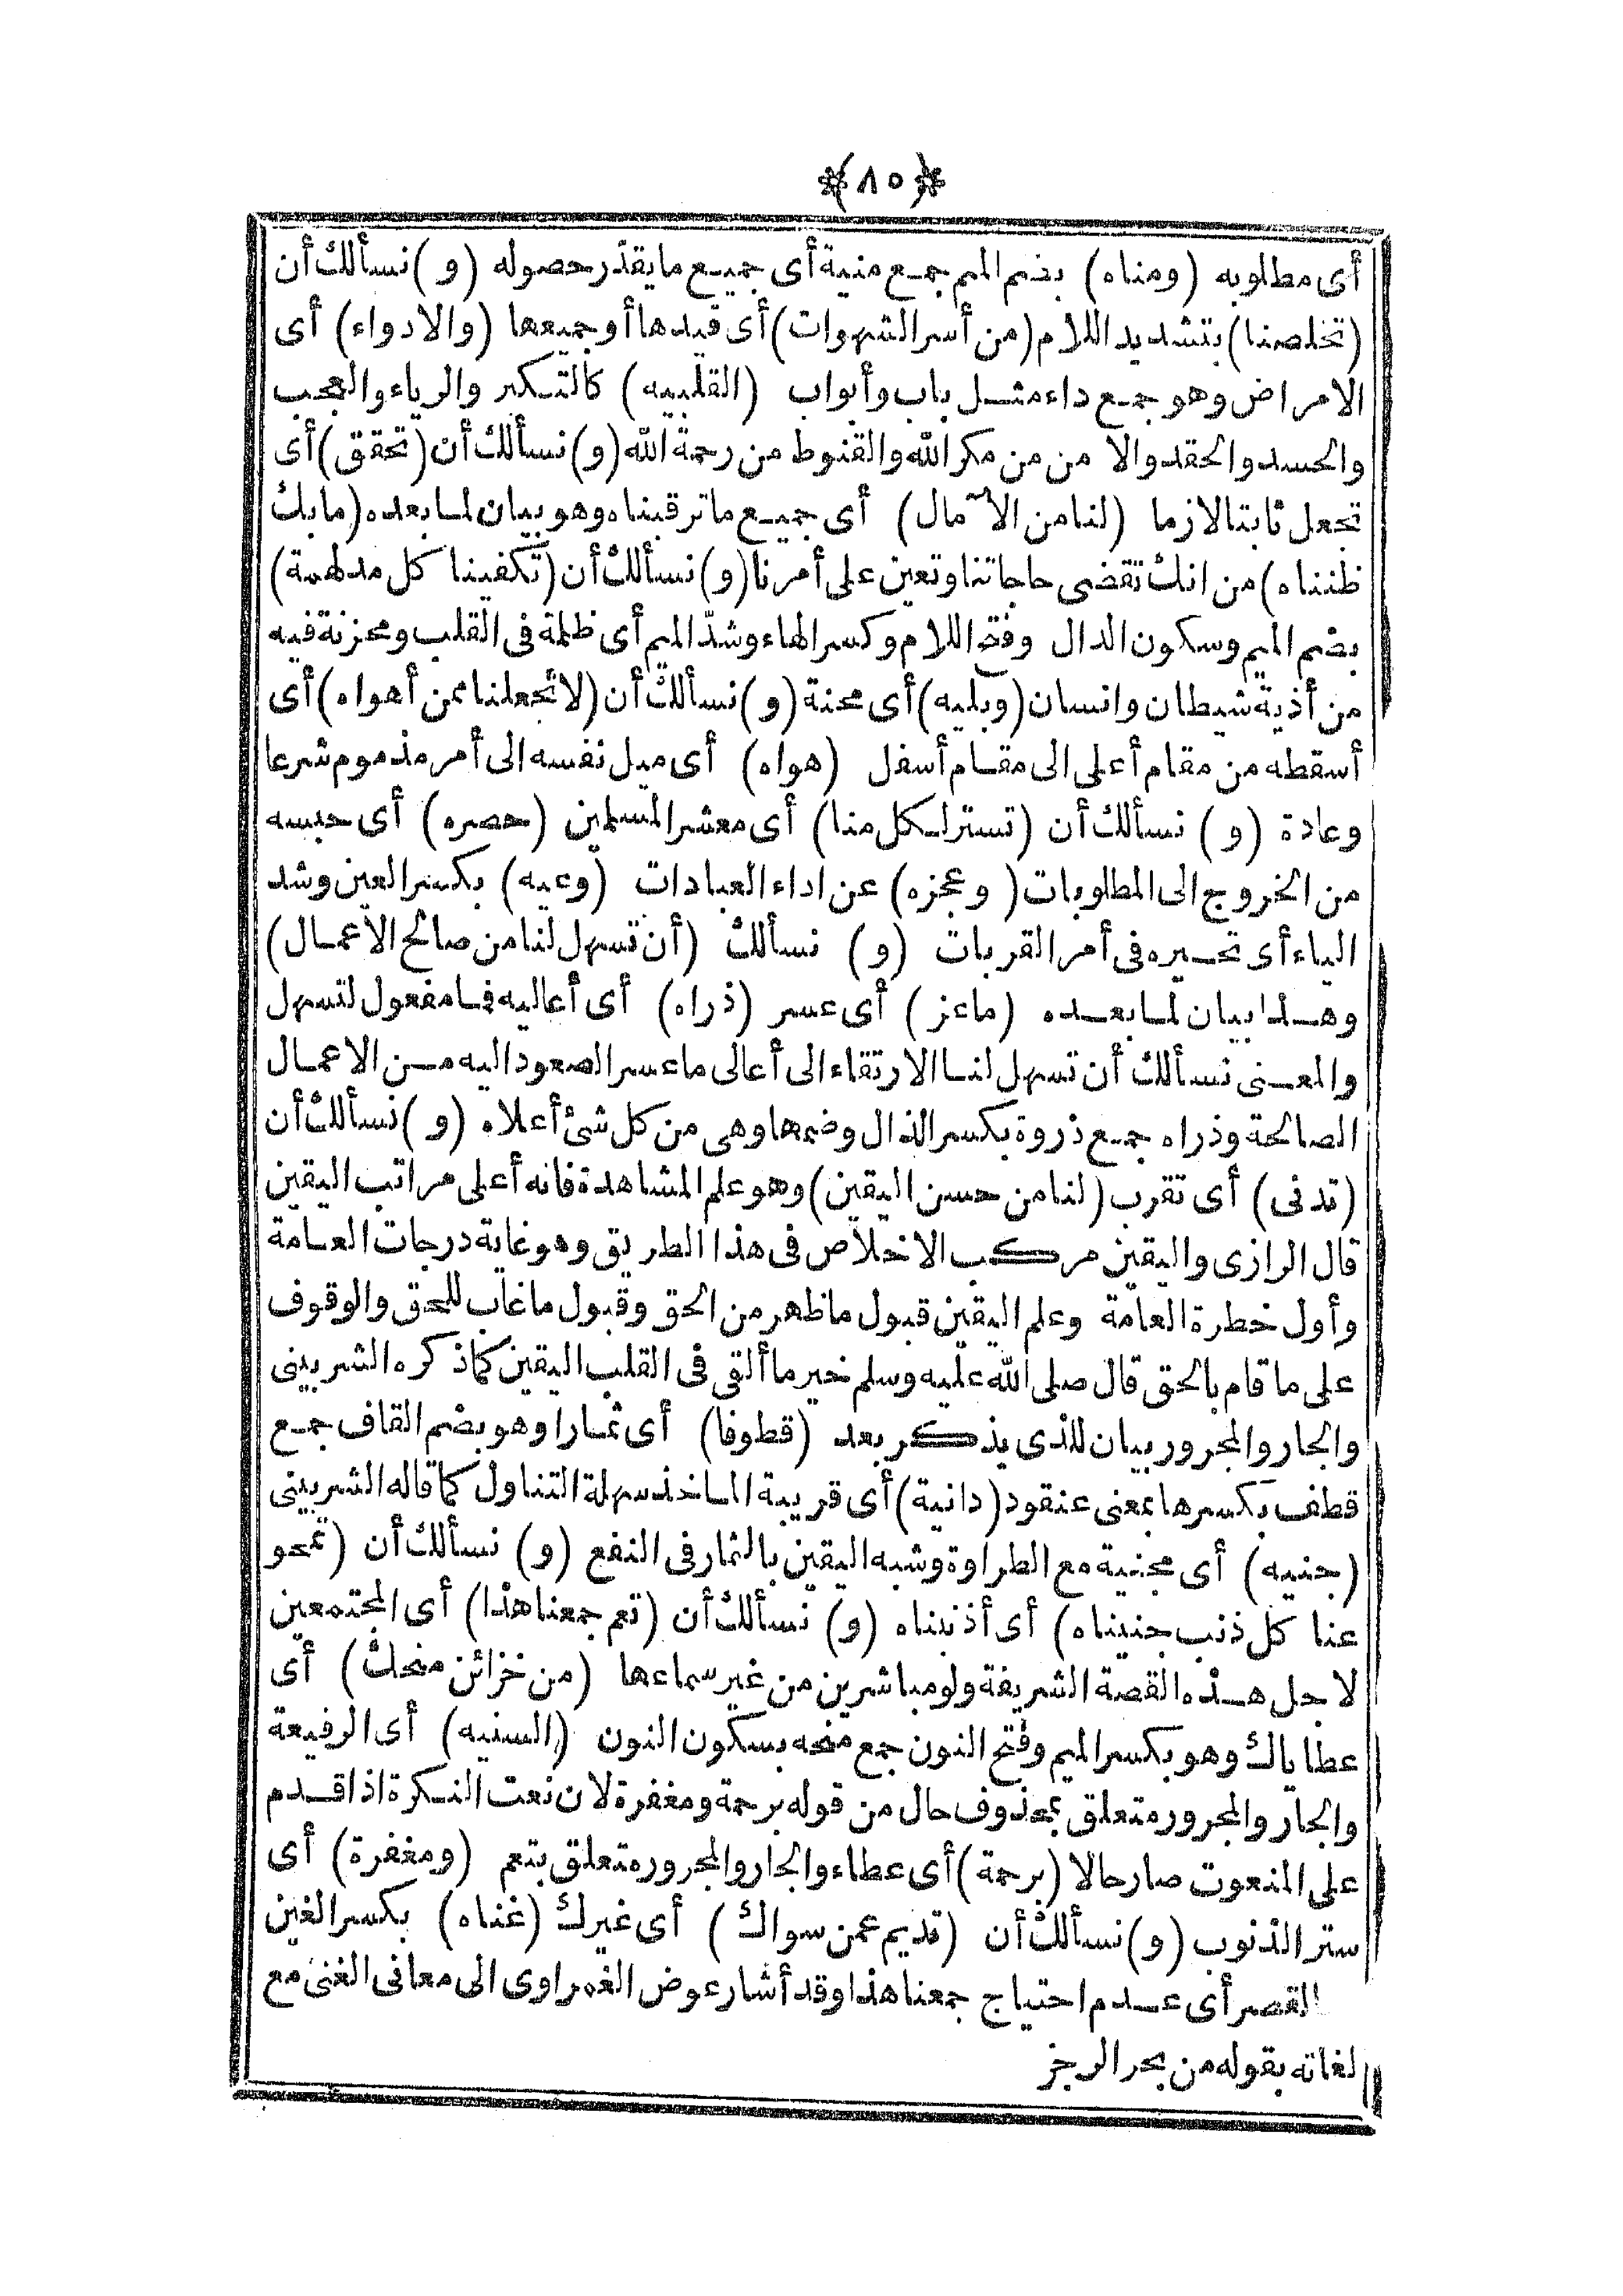 ﴿٨٥﴾
أى مطلوبه (ومناه) بضم الميم جمع منية أى جميع ما يقدّر حصوله (و) نسألك أن
(تخلصنا) بتشديد اللام (من أسر الشهوات) أى قيدها أو جميعها (والادواء) أى
الامراض وهو جمع داء مثل باب وأبواب (القلبيه) كالتكبر والرياء والعجب
والحسد والحقد والا من من مكر الله والقنوط من رحمة الله (و) نسألك أن (تحقق) أى
تجعل ثابتا لازما (لنا من الآمال) أى جميع ما ترقبناه وهو بيان لما بعده (ما بك
ظنناه) من انك تقضى حاجاتنا وتعين على أمرنا (و) نسألك أن (تكفينا كل مدلهمة)
بضم الميم وسكون الدال وفتح اللام وكسر الهاء وشدّ الميم أى ظلمة فى القلب ومحزنة فيه
من أذية شيطان وانسان (وبليه) أى محنة (و) نسألك أن (لا تجعلنا ممن أهواه) أى
أسقطه من مقام أعلى الى مقام أسفل (هواه) أى ميل نفسه الى أمر مذموم شرعا
وعادة (و) نسألك أن (تستر لكل منا) أى معشر المسلمين (حصره) أى حبسه
من الخروج الى المطلوبات (وعجزه) عن اداء العبادات (وعيه) بكسر العين وشد
الياء أى تحسيره فى أمر القربات (و) نسألك (أن تسهل لنا من صالح الاعمال)
وهذا بيان لما بعده (ما عز) أى عسر (ذراه) أى أعاليه فما مفعول لتسهل
والمعنى نسألك أن تسهل لنا الارتقاء الى أعالى ما عسر الصعود اليه من الاعمال
الصالحة وذراه جمع ذروة بكسر الذال وضمها وهى من كل شئ أعلاه (و) نسألك أن
(تدنى) أى تقرب (لنا من حسن اليقين) وهو علم المشاهدة فانه أعلى مراتب اليقين
قال الرازى واليقين مركب الاخلاص فى هذا الطريق وهو غاية درجات العامة
وأول خطرة العامة وعلم اليقين قبول ما ظهر من الحق وقبول ما غاب للحق والوقوف
على ما قام بالحق قال صلى الله عليه وسلم خير ما ألقى فى القلب اليقين كما ذكره الشربينى
والجار والمجرور بيان للذى يذكر بعد (قطوفا) أى ثمارا وهو بضم القاف جمع
قطف بكسرها بمعنى عنقود (دانية) أى قريبة المأخذ سهلة التناول كما قاله الشربينى
(جنيه) أى مجنية مع الطراوة وشبه اليقين بالثمار فى النفع (و) نسألك أن (تمحو
عنا كل ذنب جنيناه) أى أذنبناه (و) نسألك أن (تعم جمعنا هذا) أى المجتمعين
لاجل هذه القصة الشريفة ولو مباشرين من غير سماعها (من خزائن منحك) أى
عطاياك وهو بكسر الميم وفتح النون جمع منحه بسكون النون (السنيه) أى الرفيعة
والجار والمجرور متعلق بمحذوف حال من قوله برحمة ومغفرة لان نعت النكرة اذا قدم
على المنعوت صار حالا (برحمة) أى عطاء والجار والمجرور متعلق بتعم (ومغفرة) أى
ستر الذنوب (و) نسألك أن (تديم عمن سواك) أى غيرك (غناه) بكسر الغين
القصر أى عدم احتياج جمعنا هذا وقد أشار عوض الغمراوى الى معانى الغنى مع
لغاته بقوله من بحر الرجز